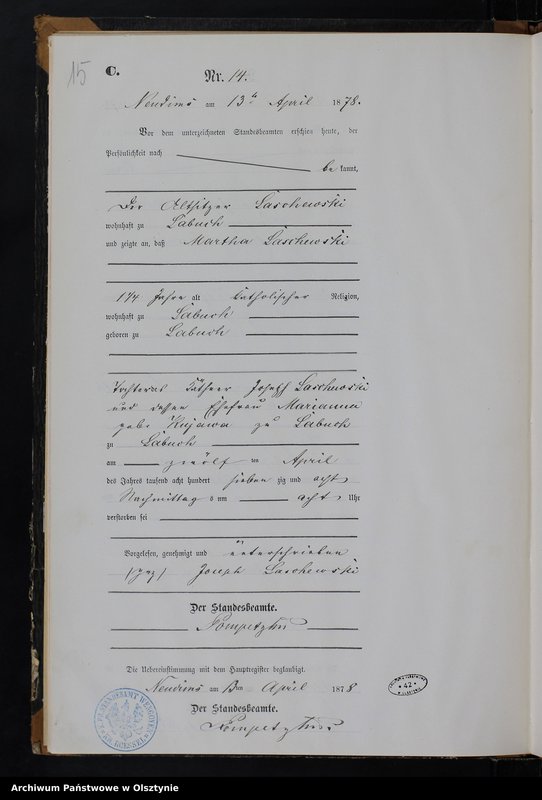 15
C.
Nr. 14.
Neudims am 13ten April 1878.
Vor dem unterzeichneten Standesbeamten erschien heute, der
Persönlichkeit nach
be kannt,
Der Altsitzer Laschewski
wohnhaft zu Labuch
und zeigte an, daß Martha Laschewski
1¼ Jahre alt katholischer Religion,
wohnhaft zu Labuch
geboren zu Labuch
Tochter des Käthner Joseph Laschewski
und dessen Ehefrau Marianna
geb. Kujawa zu Labuch
zu Labuch
am zwölf ten April
des Jahres tausend acht hundert sieben zig und acht
Nachmittag s um acht Uhr
verstorben sei
Vorgelesen, genehmigt und unterschrieben
Joseph Laschewski
Der Standesbeamte.
Die Uebereinstimmung mit dem Hauptregister beglaubigt.
Neudims am 13ten April 1878
Der Standesbeamte.
42
Archiwum Państwowe w Olsztynie